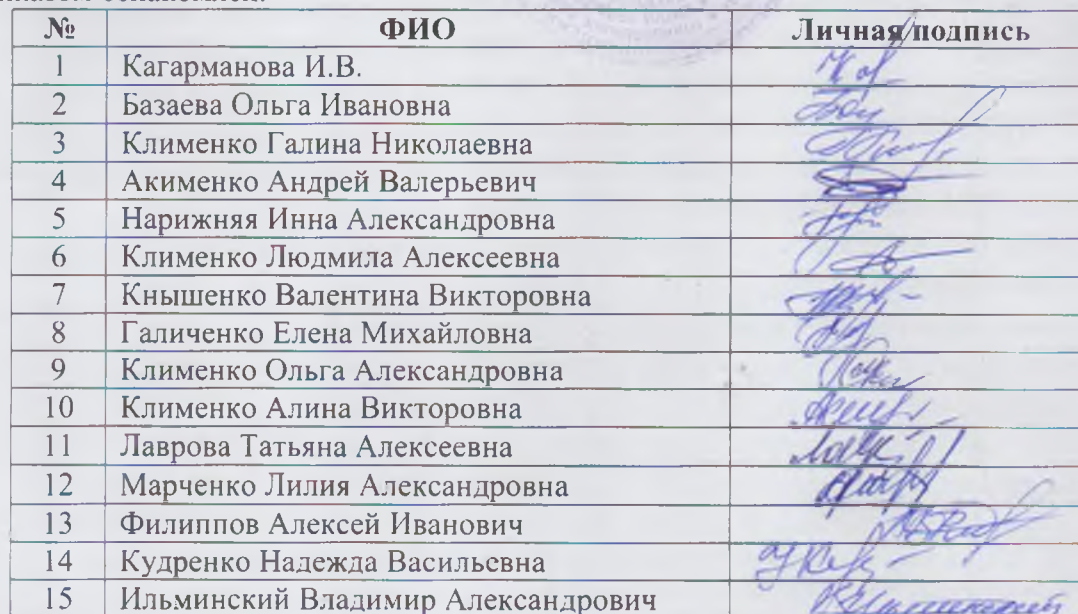 № ФИО Личная подпись
1 Кагарманова И.В.
2 Базаева Ольга Ивановна
3 Клименко Галина Николаевна
4 Акименко Андрей Валерьевич
5 Нарижняя Инна Александровна
6 Клименко Людмила Алексеевна
7 Кнышенко Валентина Викторовна
8 Галиченко Елена Михайловна
9 Клименко Ольга Александровна
10 Клименко Алина Викторовна
11 Лаврова Татьяна Алексеевна
12 Марченко Лилия Александровна
13 Филиппов Алексей Иванович
14 Кудренко Надежда Васильевна
15 Ильминский Владимир Александрович